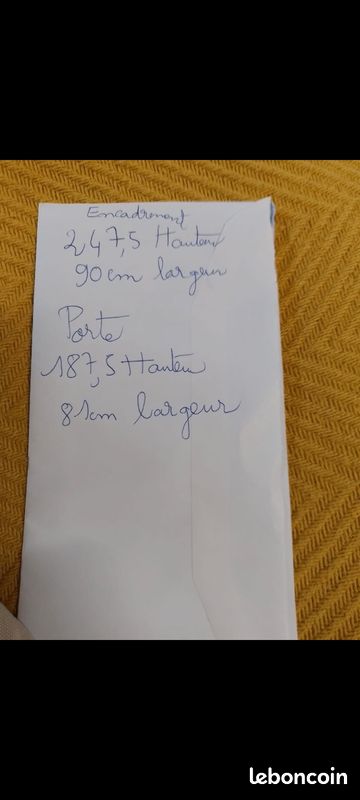 Encadrement
247,5 Hauteur
90cm largeur
Porte
187,5 Hauteur
81cm largeur
leboncoin